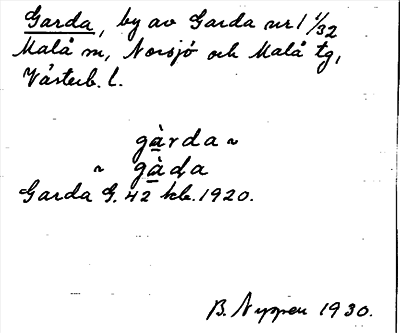 Garda, by av Garda nr 1 1/32
Malå sn, Norsjö och Malå tg,
Västerb. l.
gàrda ~
~ gàḍa
Garda G. 42 kb. 1920.
B. Nyppen 1930.